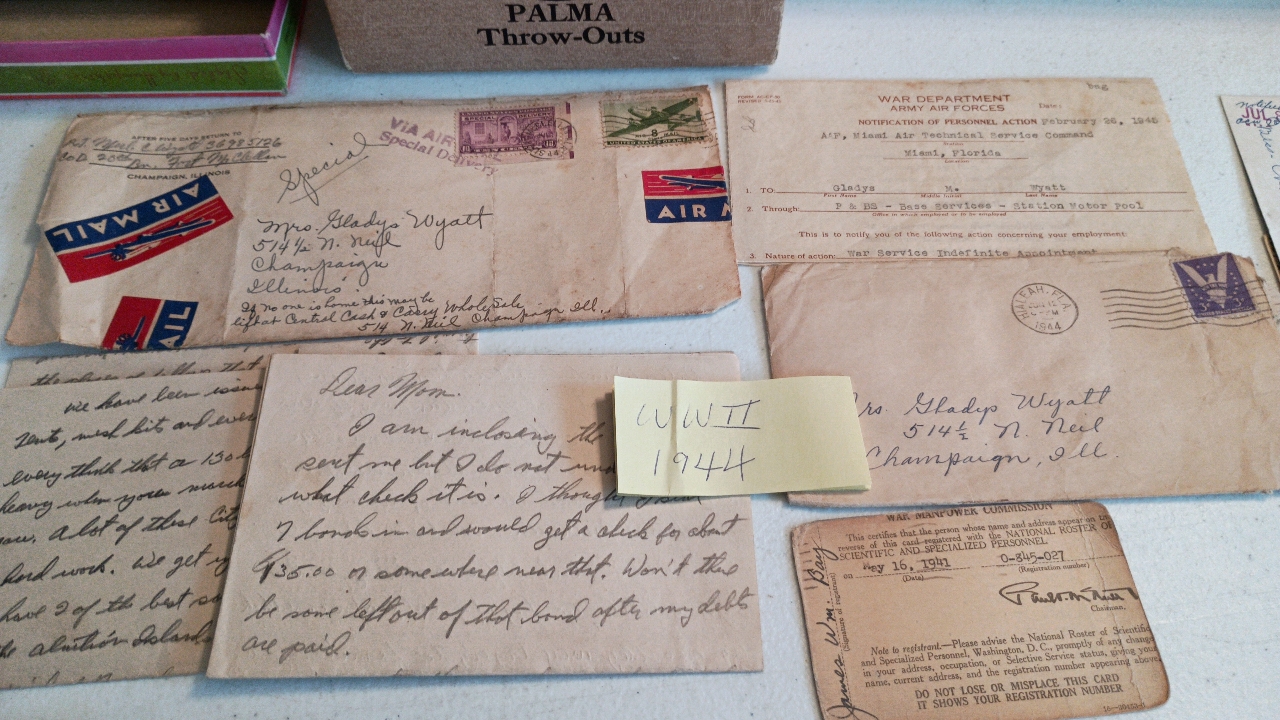 PALMA
Throw-Outs
AFTER FIVE DAYS RETURN TO
36985126
Co D. Bn. Fort McClellan
CHAMPAIGN, ILLINOIS
AIR MAIL
Special
VIA AIR
Special Delivery
8
UNITED STATES OF AMERICA
1944
AIR M
AIL
Mrs. Gladys Wyatt
514 1/2 N. Neil
Champaign
Illinois
If no one is home this may be
left at Central Cash & Carry Whole Sale
514 N. Neil Champaign Ill.
WAR DEPARTMENT
ARMY AIR FORCES
Date:
NOTIFICATION OF PERSONNEL ACTION February 26, 1945
AAF, Miami Air Technical Service Command
Station
Miami, Florida
1. TO: Gladys M. Wyatt
First Name Middle Initial Last Name
2. Through: P & BS - Base Services - Station Motor Pool
Office in which employed or to be employed
This is to notify you of the following action concerning your employment.
3. Nature of action: War Service Indefinite Appointment
HIALEAH, FLA.
1944
rs Gladys Wyatt
514 1/2 N. Neil
Champaign, Ill.
WW II
1944
we have been
tents, mesh kits and
every think that a 130
heavy when you march
A lot of these
hard work. We get
have 2 of the best
the alution Island
Dear Mom.
I am inclosing the
sent me but I do not
what check it is. I thought
7 bonds in and would get a check for about
$35.00 or some where near that. Won't there
be some left out of that bond after my debts
are paid.
WAR MANPOWER COMMISSION
This certifies that the person whose name and address appear on the
reverse of this card registered with the NATIONAL ROSTER OF
SCIENTIFIC AND SPECIALIZED PERSONNEL
on May 16, 1941 0-845-027
(Date) (Registration number)
Chairman.
James Wm. Bay
(Signature of registrant)
Note to registrant.—Please advise the National Roster of Scientific
and Specialized Personnel, Washington, D. C., promptly of any change
in your address, occupation, or Selective Service status, giving your
name, current address, and the registration number appearing above
DO NOT LOSE OR MISPLACE THIS CARD
IT SHOWS YOUR REGISTRATION NUMBER